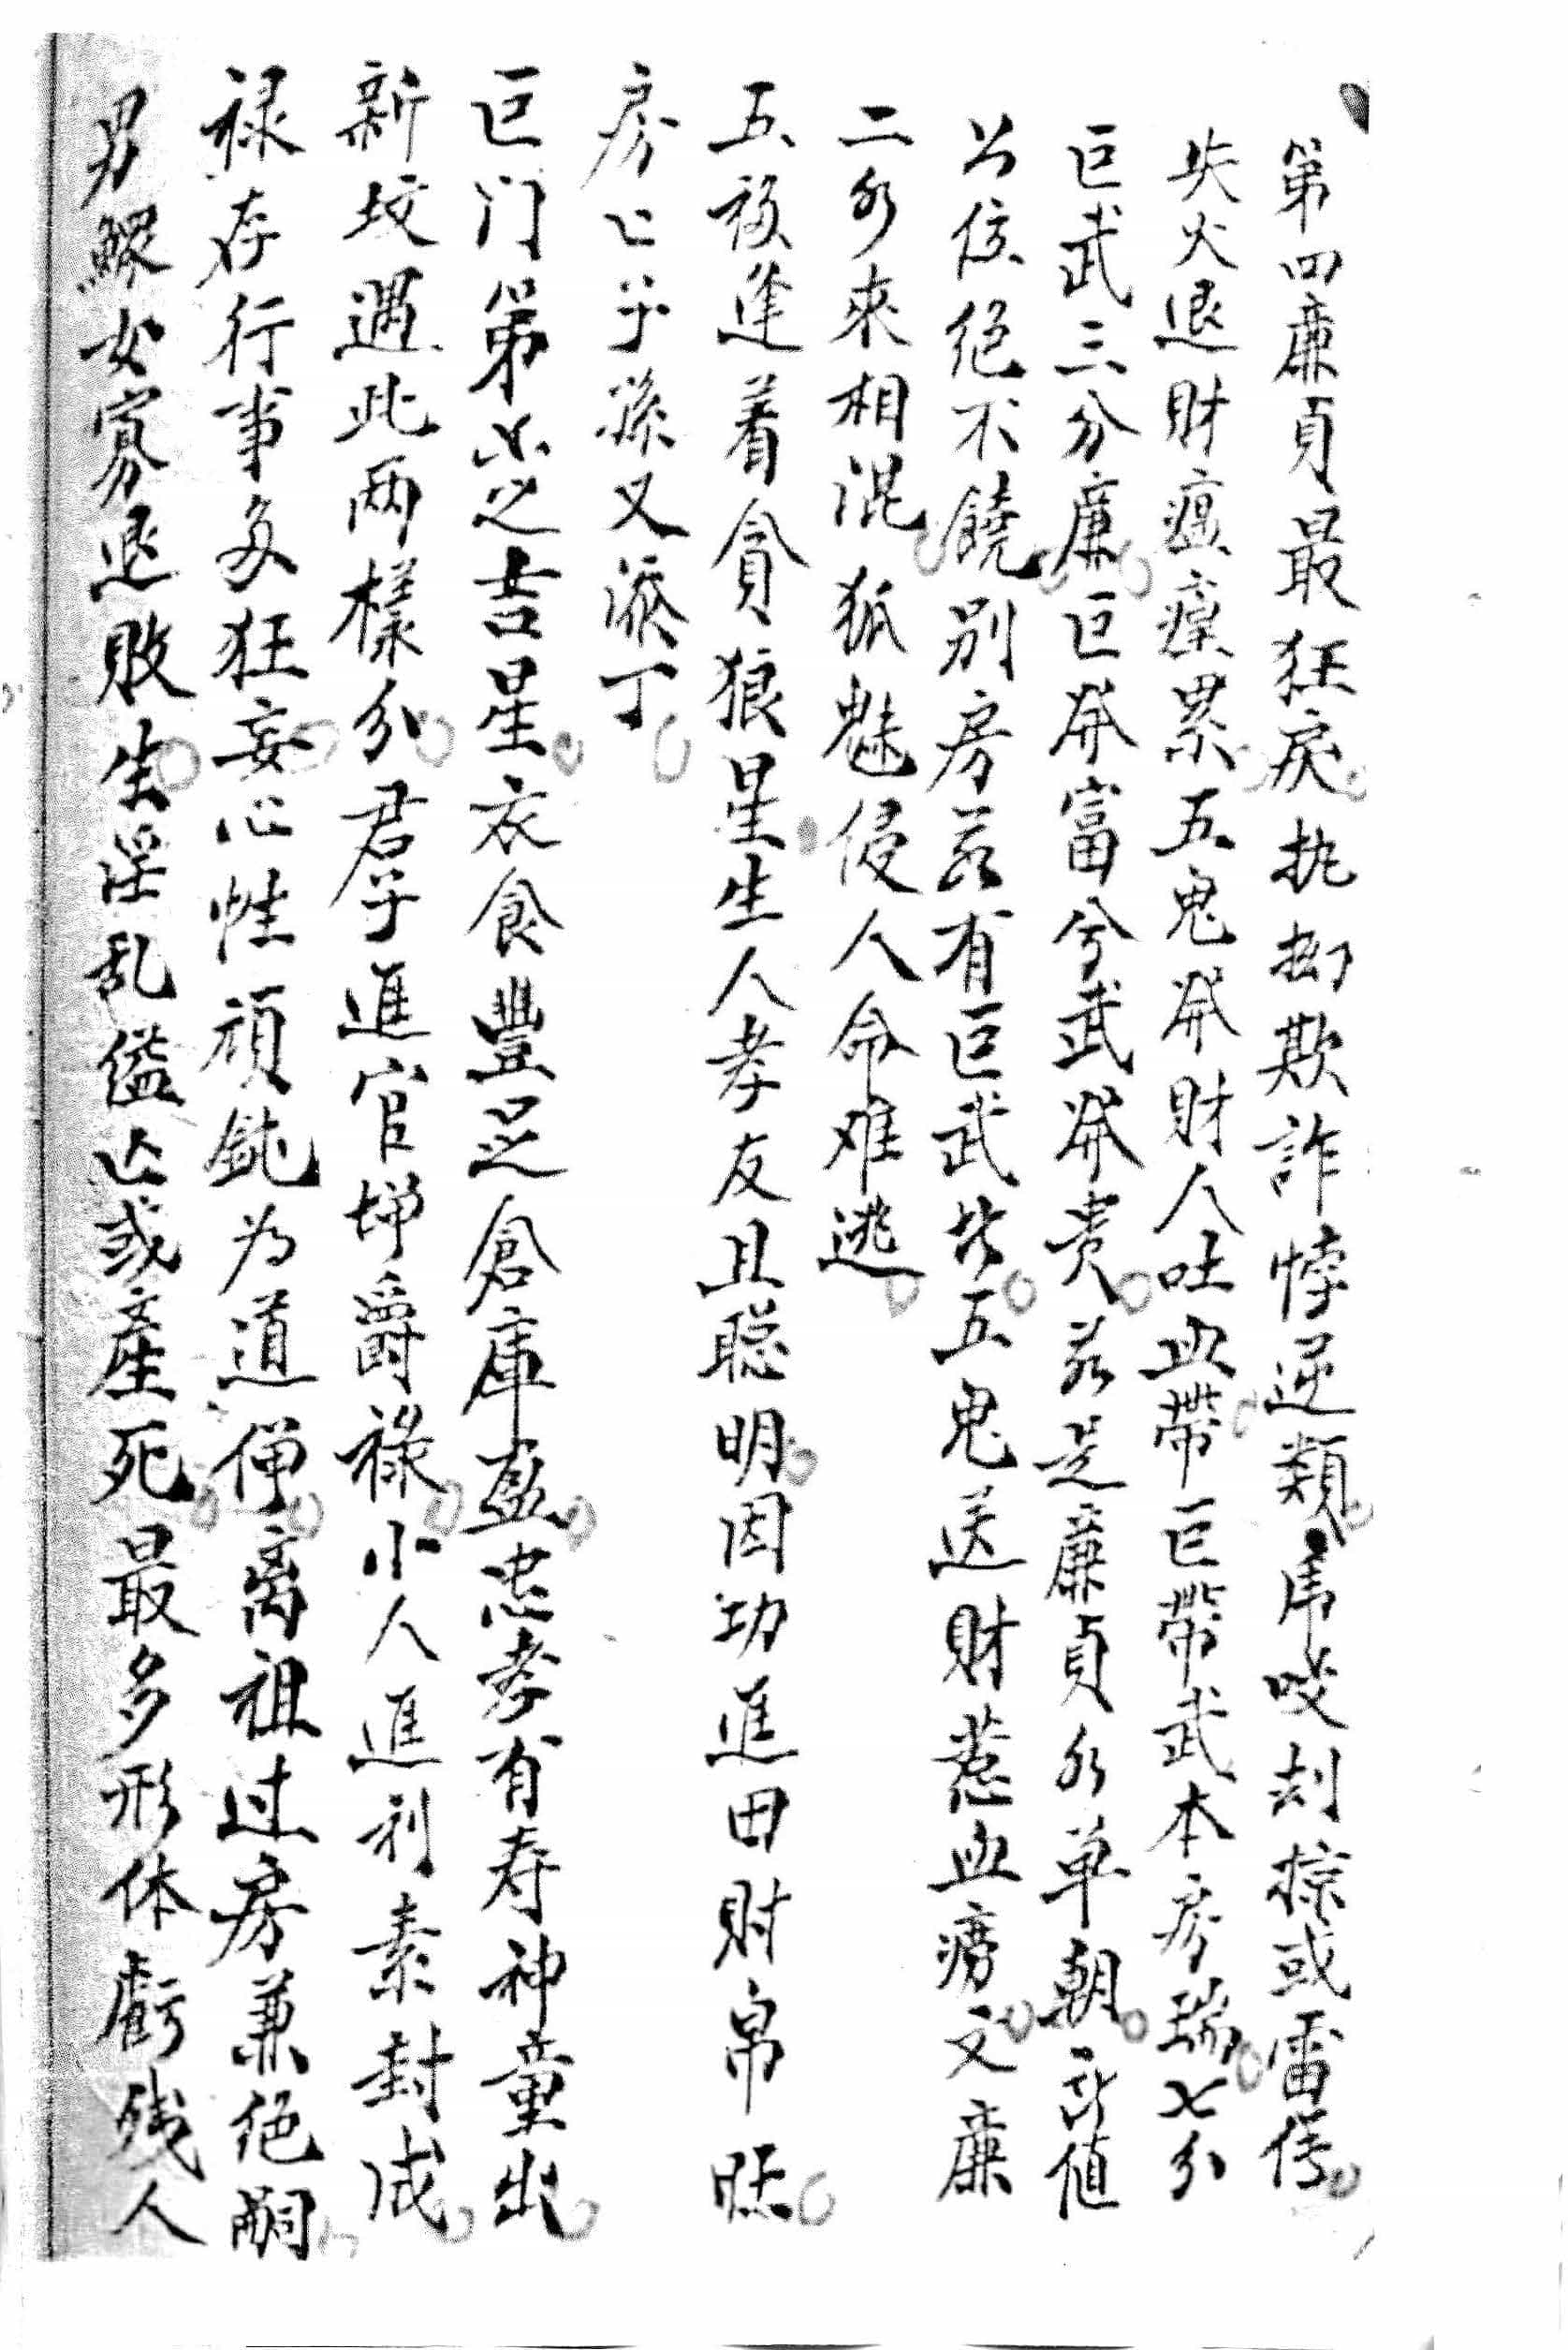 第四廉貞最狂戾执拗欺詐悖逆類虎咬刦掠或雷
失火退財瘟㾮累五鬼發財人吐血帶巨帶武本房瑞七分
巨武三分廉巨發富兮武發贵若是廉貞水单朝
公位绝不饒别房若有巨武妨五鬼送財惹血痨文廉
二水來相混狐魅侵人命难逃
五襏逢着貪狼星生人孝友且聪明因功進田財帛旺
房房子孫又添丁
巨门第二之吉星衣食豐足倉庫盈忠孝有寿神童出
新坟遇此两樣分君子進官增爵禄小人進利素封成
禄存行事多狂妄心性頑鈍为道僧离祖过房兼绝嗣
男鰥女寡退敗生淫乱缢亡或產死最多形体虧残人